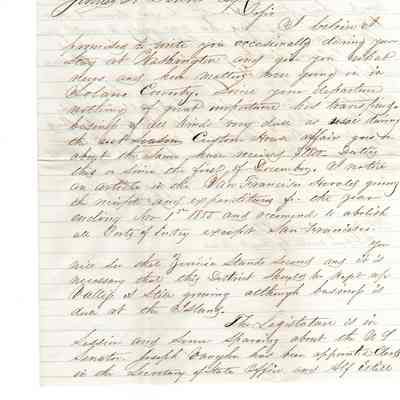 Sir
I believe I
promised to write you occasionally during your
stay at Washington and give you what
news and how matters were going on in
Solano County. Since your departure
nothing of great importance has transpired.
business of all kinds very dull as usual during
the wet season Custom House affairs goes on
about the same, have received
this is since the first of December. I notice
an article in the San Francisco Herald giving
the receipts and expenditures for the year
ending Nov 1st 1855 and recommend to abolish
all Ports of Entry except San Francisco.
You
will see that Benicia stands second and it is
necessary that this District should be kept up
Vallejo is still growing although business is
dull at the Island.
The Legislature is in
Session and some Sparring about the U S
Senator. Joseph Vaughn has been appointed Clerk
in the Secretary of State Office, and